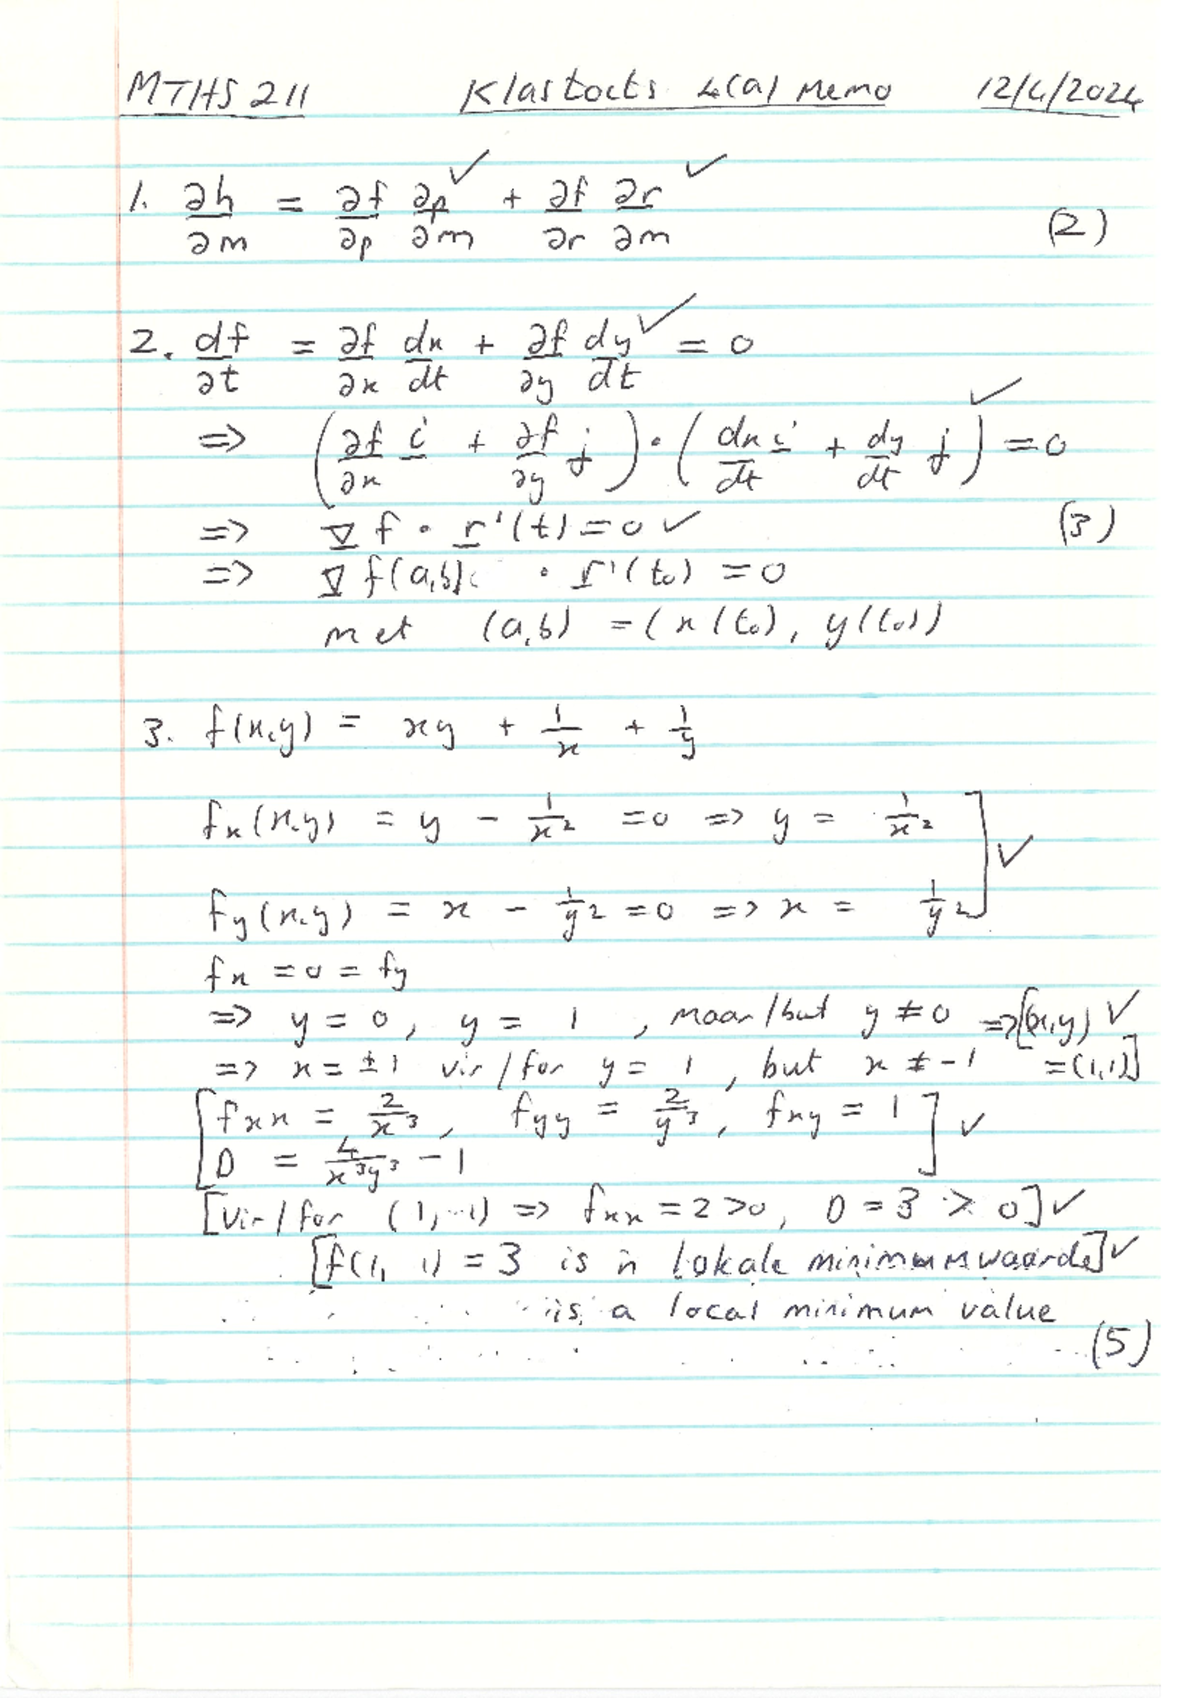 MTHS 211 Klastoets 4(a) Memo 12/4/2024
1. ∂h/∂m = ∂f/∂p ∂p/∂m ✓ + ∂f/∂r ∂r/∂m ✓ (2)
2. df/∂t = ∂f/∂x dx/dt + ∂f/∂y dy/dt ✓ = 0
=> (∂f/∂x i + ∂f/∂y j) • (dx/dt i + dy/dt j) ✓ = 0
=> ∇f • r'(t) = 0 ✓ (3)
=> ∇f(a,b) • r'(t₀) = 0
met (a,b) = (x(t₀), y(t₀))
3. f(x,y) = xy + 1/x + 1/y
fx(x,y) = y - 1/x² = 0 => y = 1/x² ] ✓
fy(x,y) = x - 1/y² = 0 => x = 1/y² ]
fx = 0 = fy
=> y = 0, y = 1, maar/but y ≠ 0 => [(x,y) ✓
=> x = ±1 vir/for y = 1, but x ≠ -1 = (1,1)]
[fxx = 2/x³, fyy = 2/y³, fxy = 1 ] ✓
D = 4/x³y³ - 1
[Vir/for (1, 1) => fxx = 2 > 0, D = 3 > 0] ✓
[f(1, 1) = 3 is 'n lokale minimumwaarde] ✓
is a local minimum value
(5)